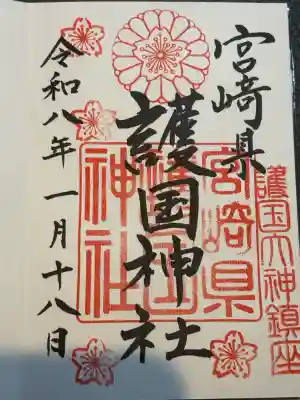 宮﨑県
護国大神鎮座
護国神社
宮崎県
護国
神社
令和八年一月十八日